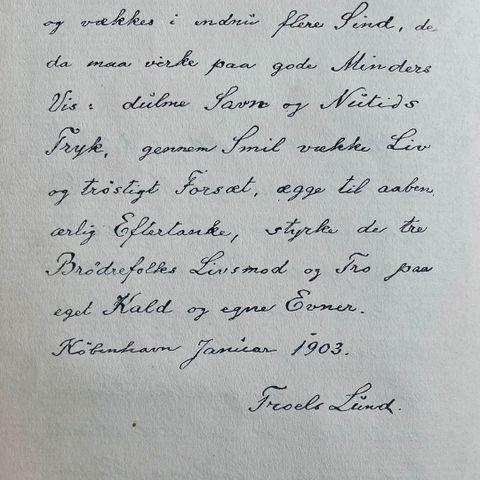 og vækkes i endnu flere Sind, de
da maa virke paa gode Minders
Vis: dulme Savn og Nutids
Tryk, gennem Smil vække Liv
og trøstigt Forsæt, ægge til aaben
ærlig Eftertanke, styrke de tre
Brødrefolks Livsmod og Tro paa
eget Kald og egne Evner.
København Januar 1903.
Troels Lund.